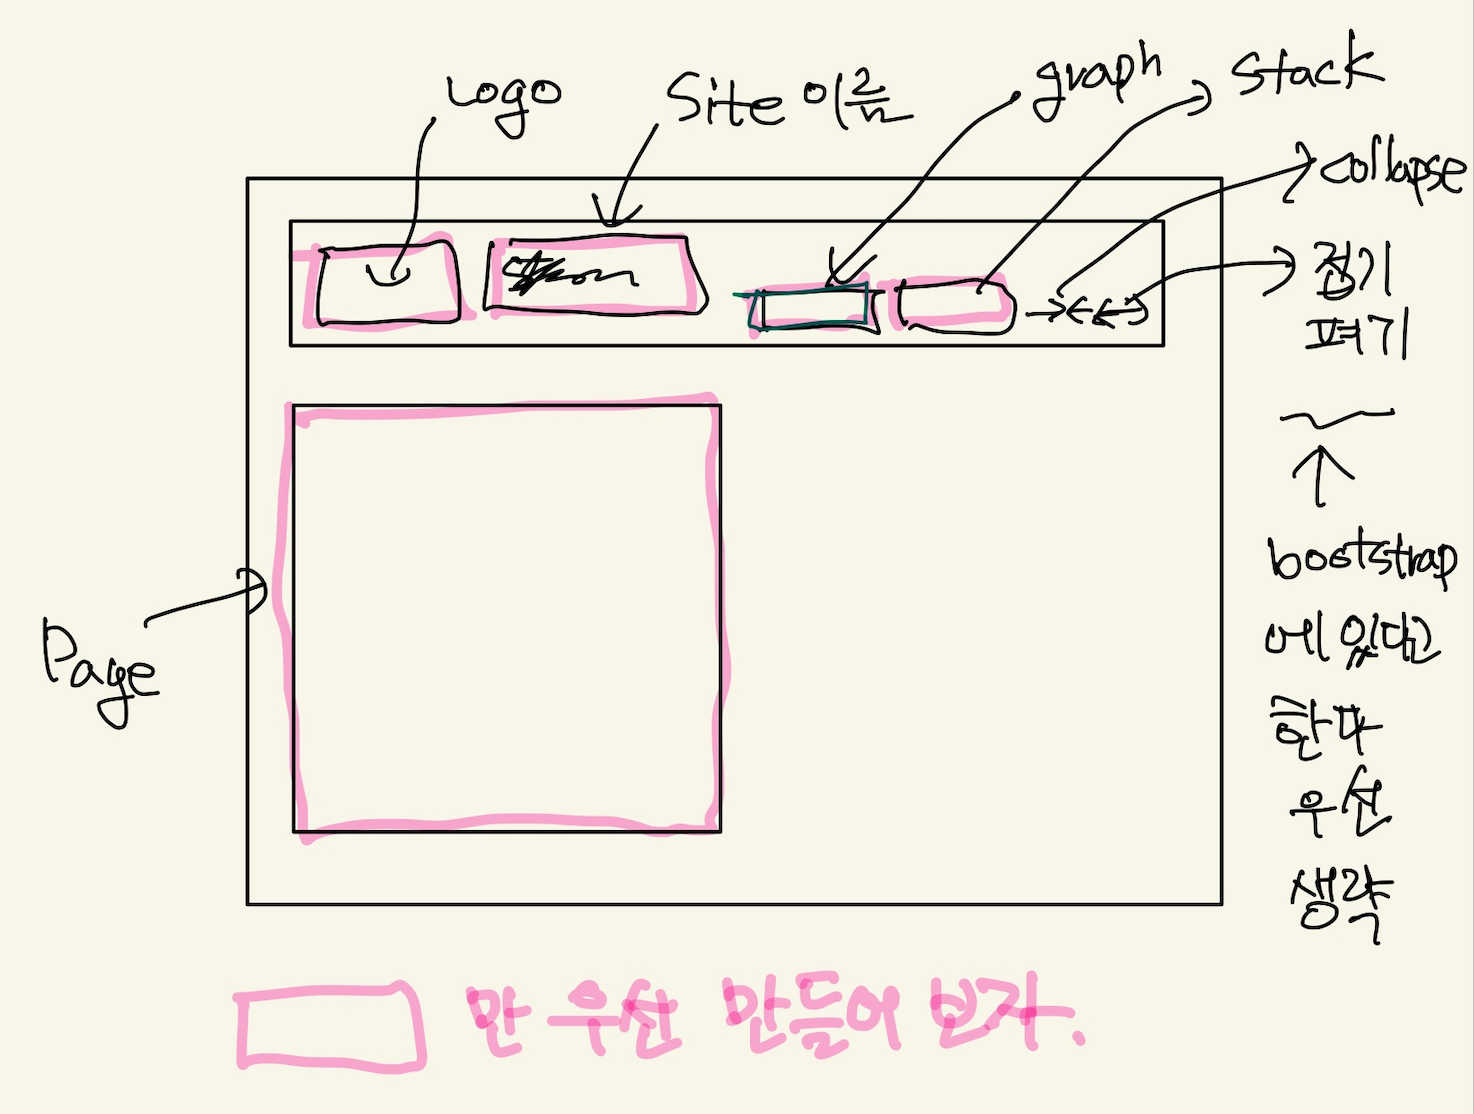 Logo
Site 이름
graph
stack
collapse
접기
펴기
Page
bootstrap
에 있다고
한다
우선
생략
만 우선 만들어 보자.